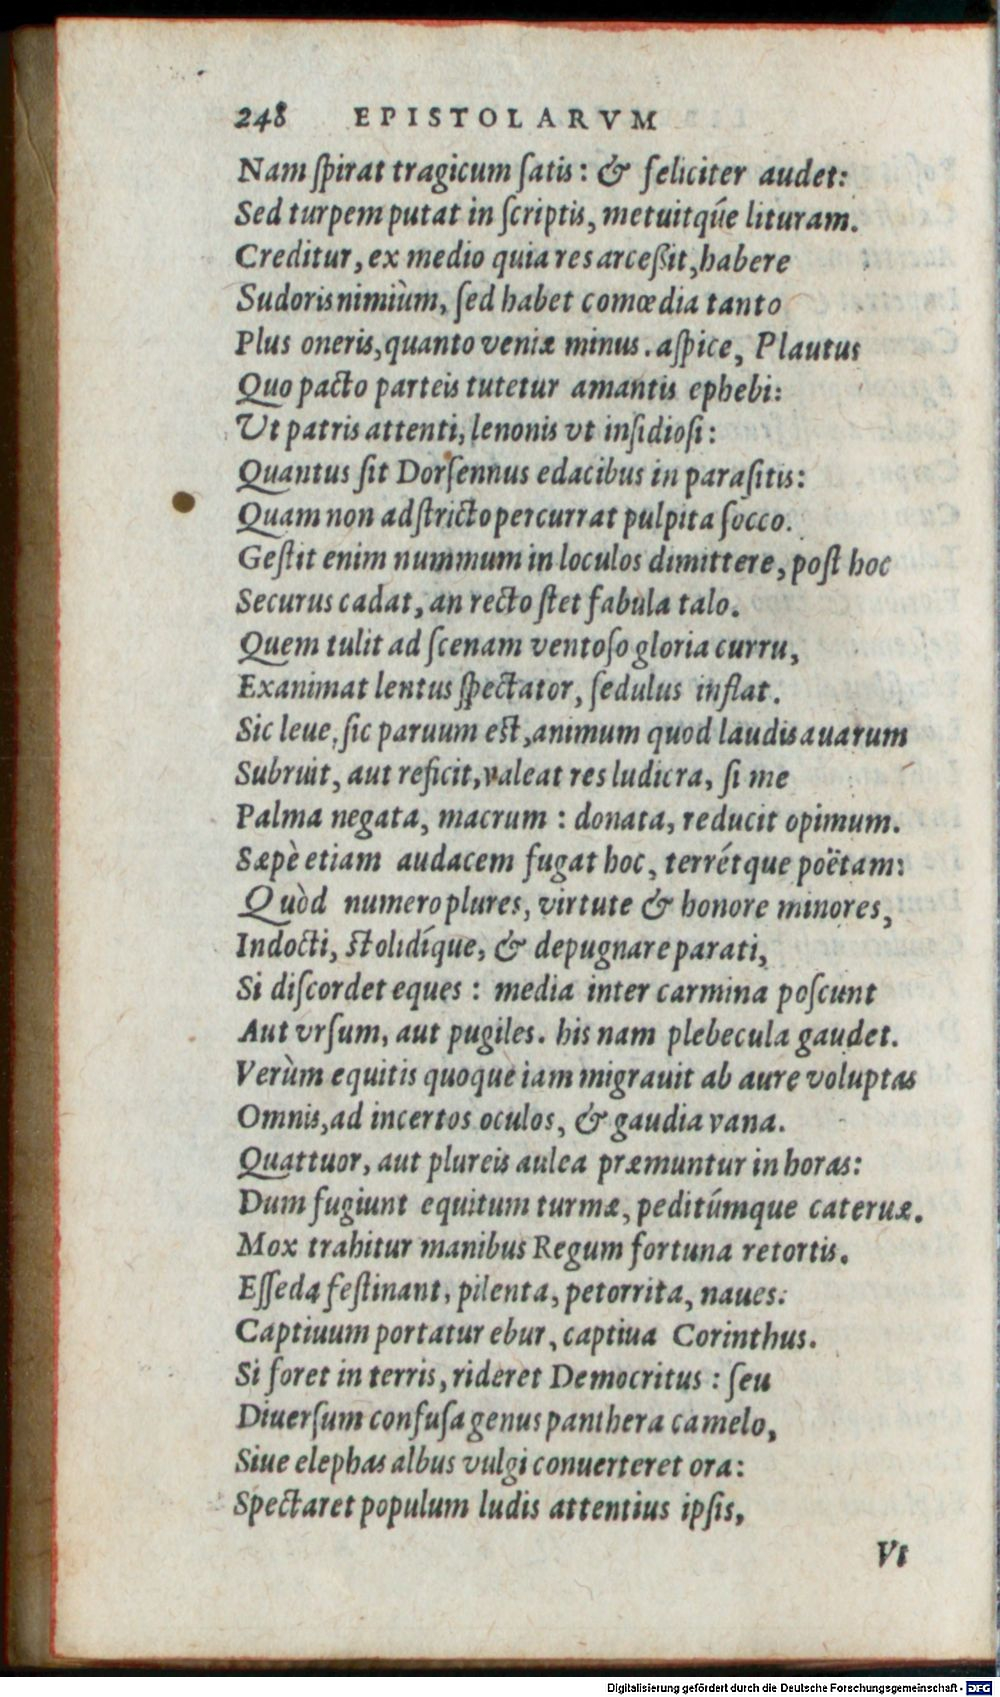 248 EPISTOLARVM
Nam ſpirat tragicum ſatis: & feliciter audet:
Sed turpem putat in ſcriptis, metuitq́ue lituram.
Creditur, ex medio quia res arceßit, habere
Sudoris nimiùm, ſed habet comœdia tanto
Plus oneris, quanto veniæ minus. aſpice, Plautus
Quo pacto parteis tutetur amantis ephebi:
Ut patris attenti, lenonis vt inſidioſi:
Quantus ſit Dorſennus edacibus in paraſitis:
Quam non adſtricto percurrat pulpita ſocco.
Geſtit enim nummum in loculos dimittere, poſt hoc
Securus cadat, an recto ſtet fabula talo.
Quem tulit ad ſcenam ventoſo gloria curru,
Exanimat lentus ſpectator, ſedulus inflat.
Sic leue, ſic paruum eſt, animum quod laudis auarum
Subruit, aut reficit, valeat res ludicra, ſi me
Palma negata, macrum : donata, reducit opimum.
Sæpè etiam audacem fugat hoc, terrétque poëtam:
Quòd numero plures, virtute & honore minores,
Indocti, ſtolidíque, & depugnare parati,
Si diſcordet eques : media inter carmina poſcunt
Aut vrſum, aut pugiles. his nam plebecula gaudet.
Verùm equitis quoque iam migrauit ab aure voluptas
Omnis, ad incertos oculos, & gaudia vana.
Quattuor, aut plureis aulea præmuntur in horas:
Dum fugiunt equitum turmæ, peditúmque cateruæ.
Mox trahitur manibus Regum fortuna retortis.
Eſſeda feſtinant, pilenta, petorrita, naues:
Captiuum portatur ebur, captiua Corinthus.
Si foret in terris, rideret Democritus : ſeu
Diuerſum confuſa genus panthera camelo,
Siue elephas albus vulgi conuerteret ora:
Spectaret populum ludis attentius ipſis,
Vt
Digitalisierung gefördert durch die Deutsche Forschungsgemeinschaft - DFG